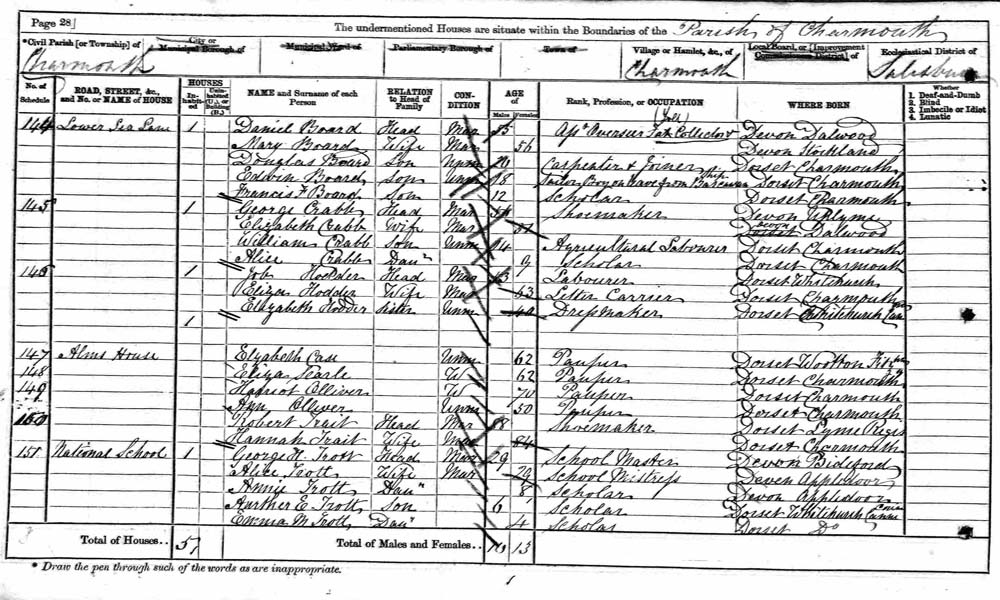 Page 28
The undermentioned Houses are situate within the Boundaries of the Parish of Charmouth
*Civil Parish [or Township] of Charmouth
City or Municipal Borough of
Municipal Ward of
Parliamentary Borough of
Town of
Village or Hamlet, &c., of Charmouth
Local Board, or [Improvement Commissioners District] of
Ecclesiastical District of Salisbury
No. of Schedule
ROAD, STREET, &c., and No. or NAME of HOUSE
HOUSES
Inhabited
Uninhabited (U.), or Building (B.)
NAME and Surname of each Person
RELATION to Head of Family
CONDITION
AGE of
Males Females
Rank, Profession, or OCCUPATION
WHERE BORN
Whether
1. Deaf-and-Dumb
2. Blind
3. Imbecile or Idiot
4. Lunatic
144 Lower Sea Lane 1 Daniel Board Head Mar Overseer Tax Collector Devon Dalwood
Mary Board Wife Mar 56 Devon Stockland
Douglas Board Son Unm Carpenter & Joiner Dorset Charmouth
Edwin Board Son Unm 18 Dorset Charmouth
Francis F Board Son 12 Scholar Dorset Charmouth
145 1 George Crabb Head Mar Shoemaker Devon Uplyme
Elizabeth Crabb Wife Mar Devon Dalwood
William Crabb Son Unm 14 Agricultural Labourer Dorset Charmouth
Alice Crabb Daur 9 Scholar Dorset Charmouth
146 1 Job Hodder Head Mar Labourer Dorset Whitchurch
Eliza Hodder Wife Mar 63 Letter Carrier Dorset Charmouth
Elizabeth Hodder Sister Unm Dressmaker Dorset Whitchurch
1
147 Alms House Elizabeth Case Unm 62 Pauper Dorset Wootton
148 Eliza Pearle W 62 Pauper Dorset Charmouth
149 Harriot Olliver W 70 Pauper Dorset Charmouth
Ann Olliver Unm 50 Pauper Dorset Charmouth
150 Robert Trait Head Mar Shoemaker Dorset Lyme Regis
Hannah Trait Wife Mar 84 Dorset Charmouth
151 National School 1 George H Trott Head Mar 29 School Master Devon Bideford
Alice Trott Wife Mar 29 School Mistress Devon Appledoor
Annie Trott Daur 8 Scholar Devon Appledoor
Aurther E. Trott Son 6 Scholar Dorset Whitchurch
Emma M Trott Daur 4 Scholar Dorset Do
Total of Houses.. 51
Total of Males and Females.. 13
* Draw the pen through such of the words as are inappropriate.